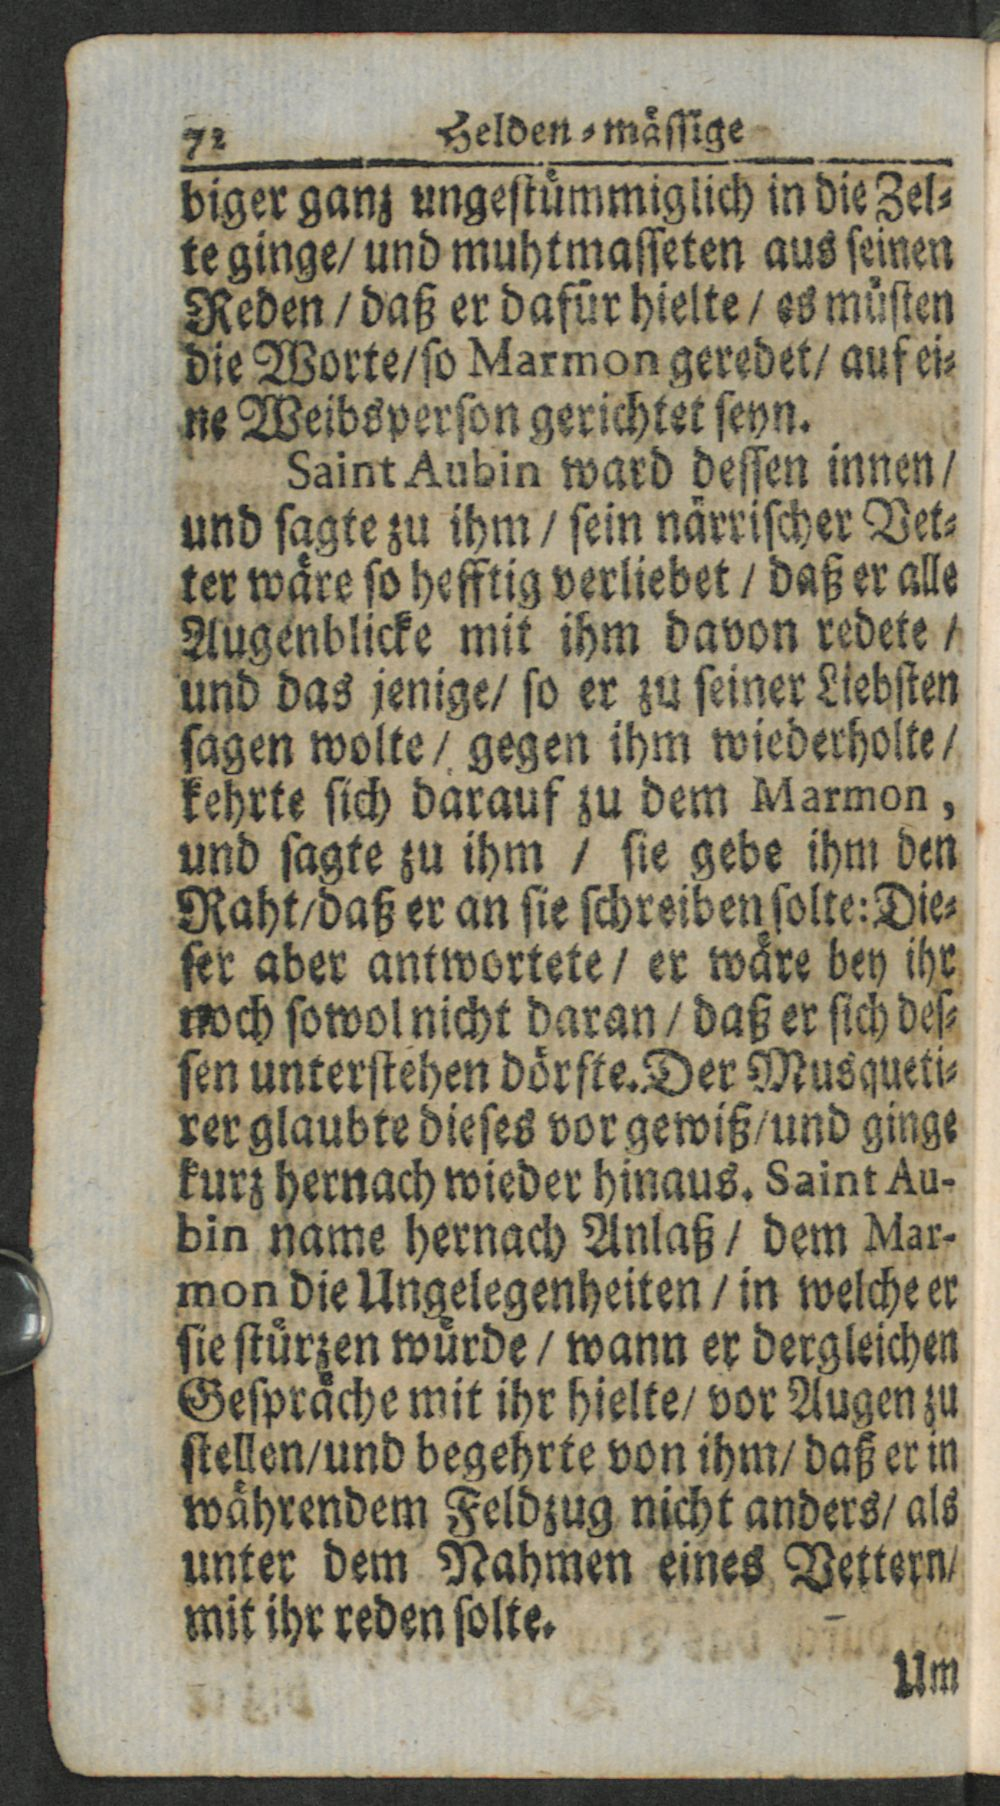 72 Helden-mässige
biger ganz ungestümmiglich in die Zel-
te ginge/ und muhtmasseten aus seinen
Reden / daß er dafür hielte / es müsten
die Worte/so Marmon geredet/ auf ei-
ne Weibsperson gerichtet seyn.
Saint Aubin ward dessen innen/
und sagte zu ihm / sein närrischer Vet-
ter wäre so hefftig verliebet / daß er alle
Augenblicke mit ihm davon redete /
und das jenige/ so er zu seiner Liebsten
sagen wolte/ gegen ihm wiederholte/
kehrte sich darauf zu dem Marmon,
und sagte zu ihm / sie gebe ihm den
Raht/daß er an sie schreiben solte: Die-
ser aber antwortete / er wäre bey ihr
noch sowol nicht daran / daß er sich des-
sen unterstehen dörfte. Der Musqueti-
rer glaubte dieses vor gewiß/und ginge
kurz hernach wieder hinaus. Saint Au-
bin name hernach Anlaß / dem Mar-
mon die Ungelegenheiten / in welche er
sie stürzen würde / wann er dergleichen
Gespräche mit ihr hielte/ vor Augen zu
stellen/und begehrte von ihm/ daß er in
währendem Feldzug nicht anders/ als
unter dem Nahmen eines Vettern/
mit ihr reden solte.
Um